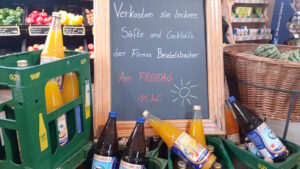 Verkosten sie leckere
Säfte und Cocktails
der Firma Beutelsbacher
Am FREITAG
11. Juli